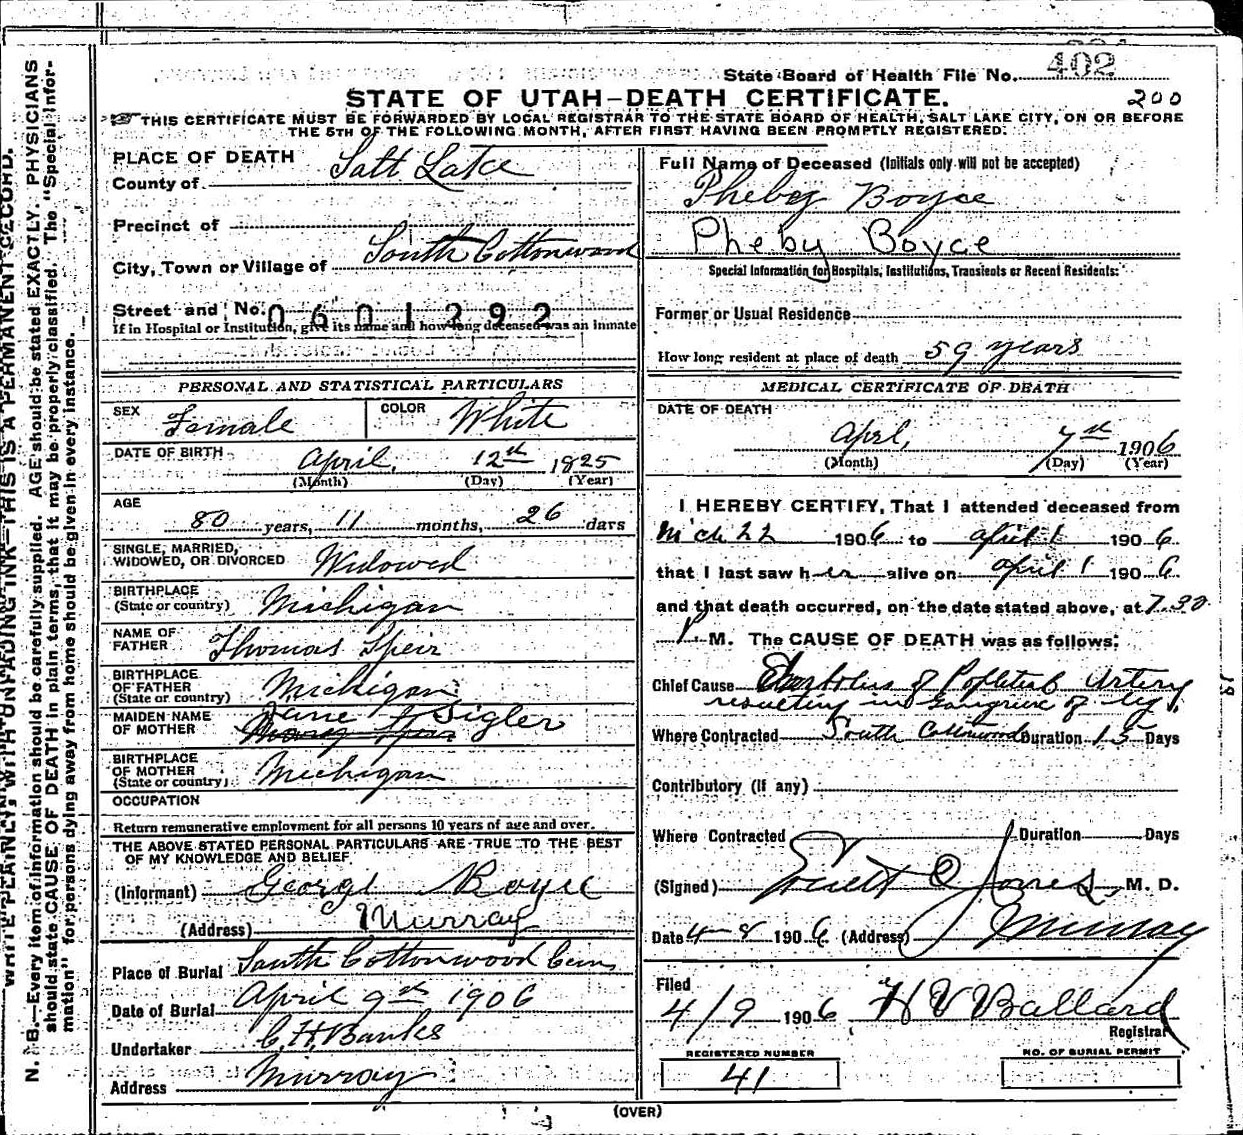 State Board of Health File No. 402
STATE OF UTAH—DEATH CERTIFICATE.
200
THIS CERTIFICATE MUST BE FORWARDED BY LOCAL REGISTRAR TO THE STATE BOARD OF HEALTH, SALT LAKE CITY, ON OR BEFORE
THE 5TH OF THE FOLLOWING MONTH, AFTER FIRST HAVING BEEN PROMPTLY REGISTERED.
WRITE PLAINLY, WITH UNFADING INK—THIS IS A PERMANENT RECORD.
N. B.—Every item of information should be carefully supplied. AGE should be stated EXACTLY. PHYSICIANS
should state CAUSE OF DEATH in plain terms, that it may be properly classified. The "Special Infor-
mation" for persons dying away from home should be given in every instance.
PLACE OF DEATH
County of Salt Lake
Precinct of
City, Town or Village of South Cottonwood
Street and No. 0601292
If in Hospital or Institution, give its name and how long deceased was an inmate
PERSONAL AND STATISTICAL PARTICULARS
SEX Female COLOR White
DATE OF BIRTH April 12th 1825
(Month) (Day) (Year)
AGE
80 years, 11 months, 26 days
SINGLE, MARRIED,
WIDOWED, OR DIVORCED Widowed
BIRTHPLACE
(State or country) Michigan
NAME OF
FATHER Thomas Speir
BIRTHPLACE
OF FATHER
(State or country) Michigan
MAIDEN NAME
OF MOTHER Jane Sigler
BIRTHPLACE
OF MOTHER
(State or country) Michigan
OCCUPATION
Return remunerative employment for all persons 10 years of age and over.
THE ABOVE STATED PERSONAL PARTICULARS ARE TRUE TO THE BEST
OF MY KNOWLEDGE AND BELIEF
(Informant) George Boyce
(Address) Murray
Place of Burial South Cottonwood Cem
Date of Burial April 9th 1906
Undertaker C. H. Banks
Address Murray
Full Name of Deceased (Initials only will not be accepted)
Pheby Boyce
Pheby Boyce
Special Information for Hospitals, Institutions, Transients or Recent Residents:
Former or Usual Residence
How long resident at place of death 59 years
MEDICAL CERTIFICATE OF DEATH
DATE OF DEATH
Aprl, 7th 1906
(Month) (Day) (Year)
I HEREBY CERTIFY, That I attended deceased from
Mch 22 1906 to April 1 1906
that I last saw her alive on April 1 1906
and that death occurred, on the date stated above, at 7.30
P. M. The CAUSE OF DEATH was as follows:
Chief Cause Embolus of Popliteal Artery
resulting in Gangrene of leg.
Where Contracted South Cottonwood Duration 15 Days
Contributory (If any)
Where Contracted Duration Days
(Signed) Jones, M. D.
Date 4-8 1906 (Address) Murray
Filed
4/9 1906 H V Ballard
Registrar
REGISTERED NUMBER
41
NO. OF BURIAL PERMIT
(OVER)